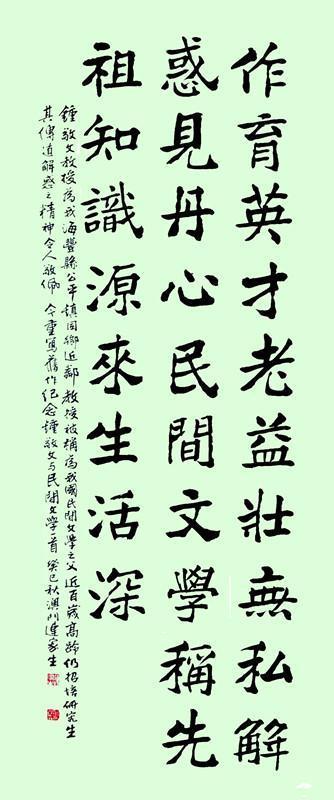 作育英才老益壯無私解
惑見丹心民間文學稱先
祖知識源來生活深
鍾敬文教授為我海豐縣公平鎮同鄉近鄰教授被稱為我國民間文學之父近百歲高齡仍招培研究生
其傳道解惑之精神令人敬佩 今重寫舊作紀念鍾敬文与民間文學一首 癸巳秋澳门連家生